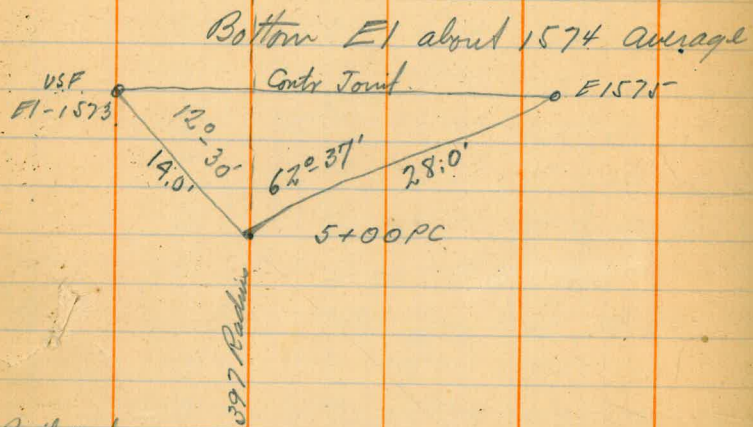 Bottom El about 1574 average
USF
El-1573
Contr Joint
E1575
12°-30'
14.0'
62°-37'
28.0'
5+00PC
397 Radius